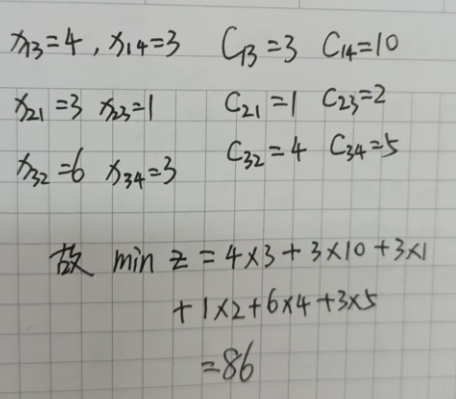 x13=4, x14=3 C13=3 C14=10
x21=3 x23=1 C21=1 C23=2
x32=6 x34=3 C32=4 C34=5
故 min z = 4×3+3×10+3×1
+1×2+6×4+3×5
=86